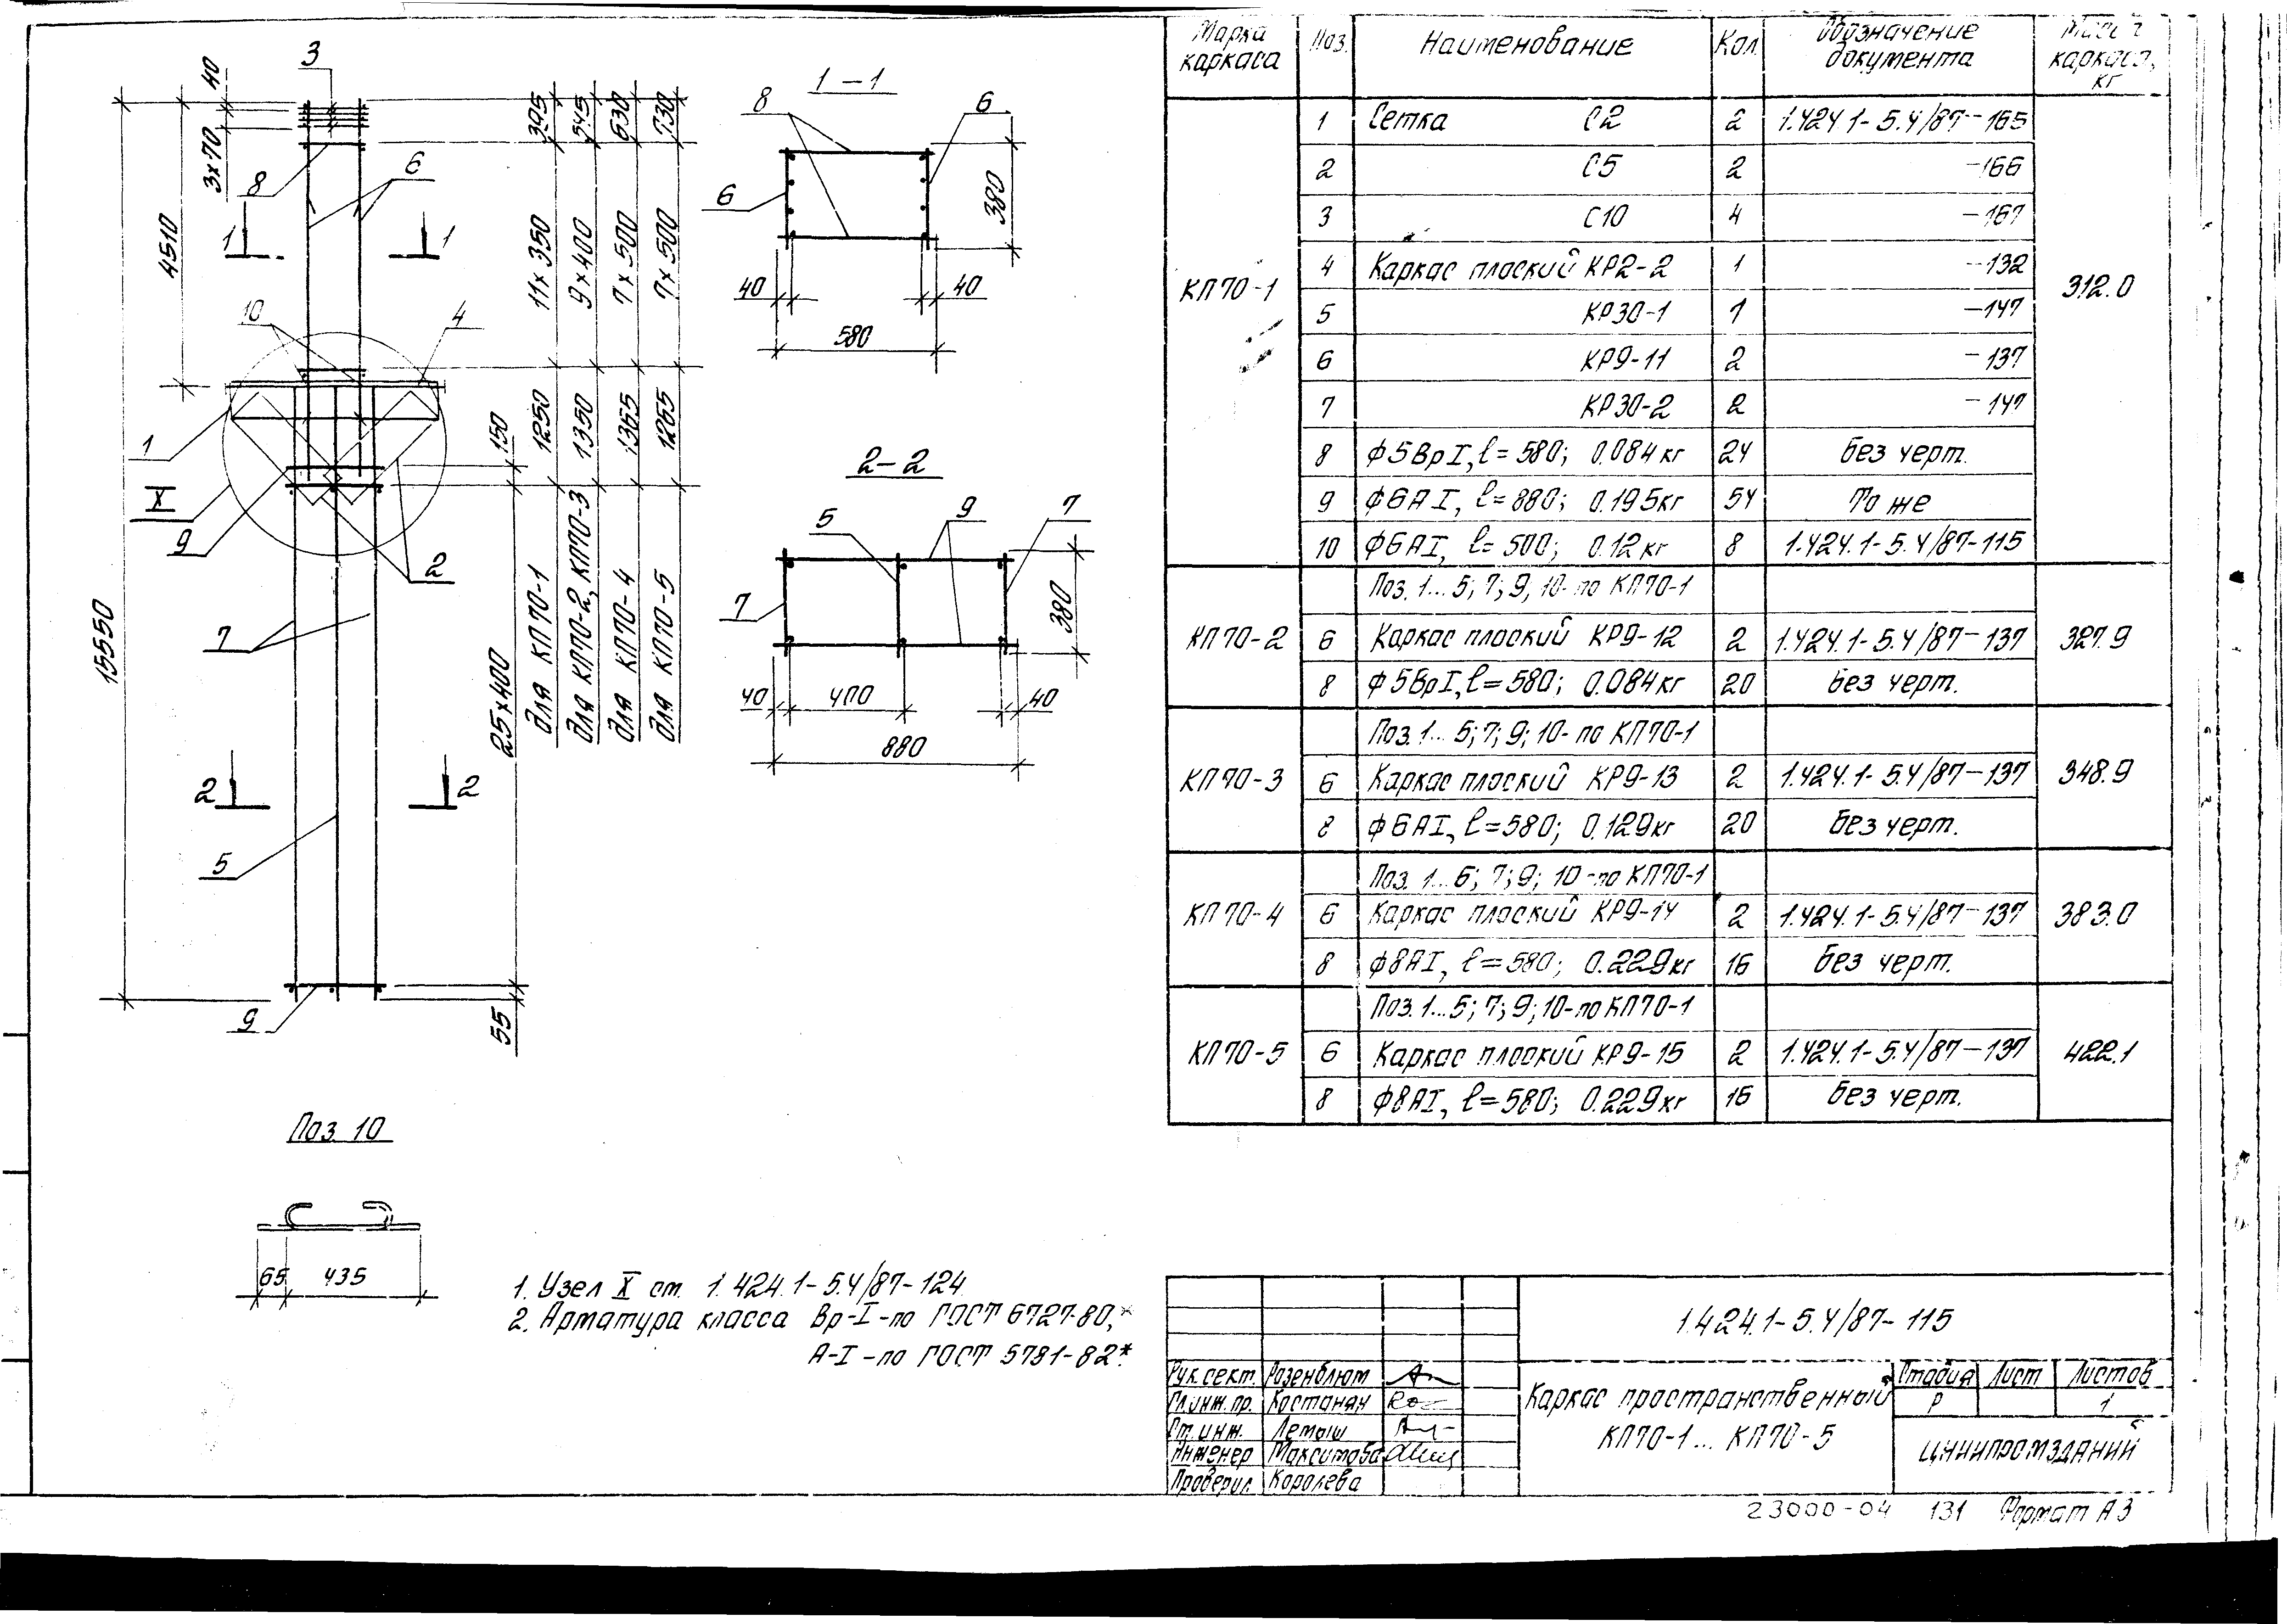 3
40
3х70
8
6
4510
1 1
10
4
1
X
9
9
2
15550
7
2 2
5
9
150
25х400
55
395
11х350
1250
для КП70-1
545
9х400
1350
для КП70-2, КП70-3
630
7х500
1365
для КП70-4
730
7х500
1265
для КП70-5
1-1
8
6
6
380
40
40
580
2-2
5
9
7
7
380
40
400
40
880
Поз. 10
65
435
1. Узел X см. 1.424.1-5.4/87-124.
2. Арматура класса Вр-I-по ГОСТ 6727-80,*
А-I-по ГОСТ 5781-82*.
Марка каркаса Поз. Наименование Кол. Обозначение документа Масса каркаса, кг
КП70-1 312.0
1 Сетка С2 2 1.424.1-5.4/87-165
2 С5 2 -166
3 С10 4 -167
4 Каркас плоский КР2-2 1 -132
5 КР30-1 1 -147
6 КР9-11 2 -137
7 КР30-2 2 -147
8 Ф5ВрI, ℓ=580; 0.084кг 24 без черт.
9 Ф6АI, ℓ=880; 0.195кг 54 То же
10 Ф6АI, ℓ=500; 0.12кг 8 1.424.1-5.4/87-115
Поз. 1...5; 7; 9; 10-по КП70-1
КП70-2 6 Каркас плоский КР9-12 2 1.424.1-5.4/87-137 327.9
8 Ф5ВрI, ℓ=580; 0.084кг 20 без черт.
Поз. 1...5; 7; 9; 10-по КП70-1
КП70-3 6 Каркас плоский КР9-13 2 1.424.1-5.4/87-137 348.9
8 Ф6АI, ℓ=580; 0.129кг 20 без черт.
Поз. 1...6; 7; 9; 10-по КП70-1
КП70-4 6 Каркас плоский КР9-14 2 1.424.1-5.4/87-137 383.0
8 Ф8АI, ℓ=580; 0.229кг 16 без черт.
Поз. 1...5; 7; 9; 10-по КП70-1
КП70-5 6 Каркас плоский КР9-15 2 1.424.1-5.4/87-137 422.1
8 Ф8АI, ℓ=580; 0.229кг 16 без черт.
1.424.1-5.4/87-115
Рук.сект. Розенблюм
Гл.инж.пр. Костанян
Ст.инж. Лемыш
Инженер Максимова
Проверил Королева
Каркас пространственный
КП70-1... КП70-5
Стадия Лист Листов
Р 1
ЦНИИПРОМЗДАНИЙ
23000-04 131 Формат А3